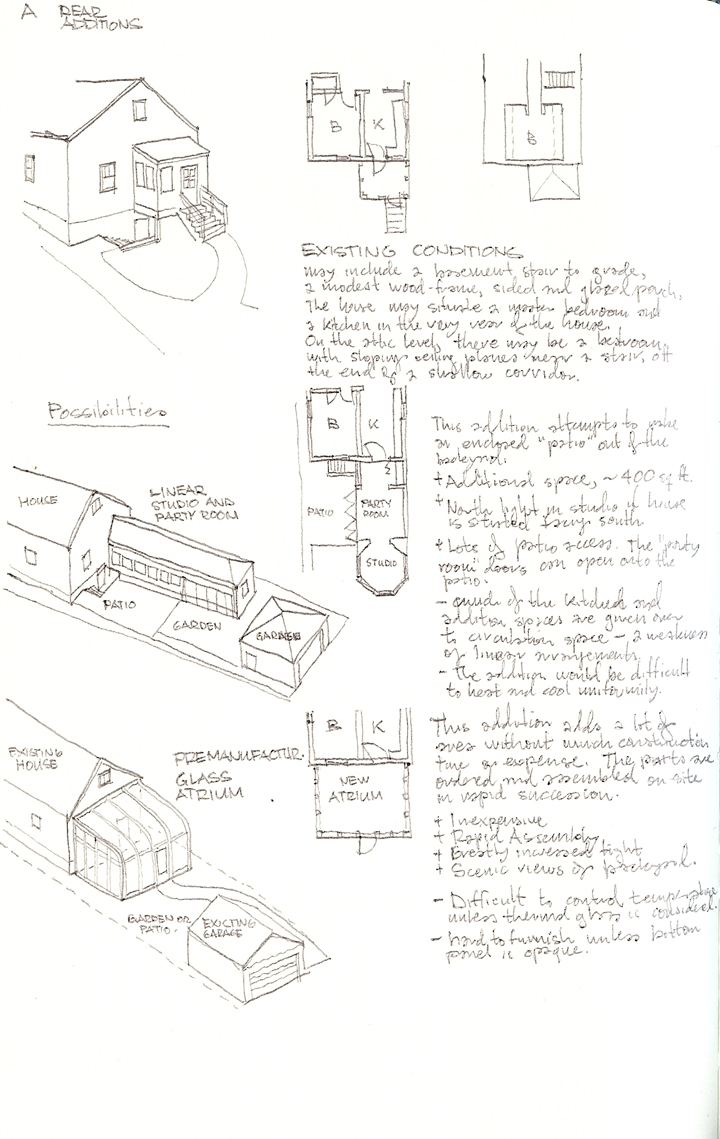 A REAR
ADDITIONS
B
K
B
EXISTING CONDITIONS
may include a basement stair to grade,
a modest wood-frame, sided and glazed porch,
The house may situate a master bedroom and
a kitchen in the very rear of the house.
On the attic level, there may be a bedroom
with sloping ceiling planes near a stair, off
the end of a shallow corridor.
Possibilities
HOUSE
LINEAR
STUDIO AND
PARTY ROOM
PATIO
GARDEN
GARAGE
B
K
PATIO
PARTY
ROOM
STUDIO
This addition attempts to make
an enclosed "patio" out of the
backyard.
+ Additional space, ~ 400 sq ft.
+ North light in studio if house
is facing south
+ Lots of patio access. The "party
room" doors can open onto the
patio.
- much of the kitchen and
addition spaces are given over
to circulation space - a weakness
of linear arrangements
- The addition would be difficult
to heat and cool uniformly.
EXISTING
HOUSE
PREMANUFACTUR.
GLASS
ATRIUM
GARDEN OR
PATIO.
EXISTING
GARAGE
B
K
NEW
ATRIUM
This addition adds a lot of
area without much construction
time or expense. The parts are
ordered and assembled on site
in rapid succession.
+ Inexpensive
+ Rapid Assembly
+ Greatly increased light
+ Scenic views of backyard.
- Difficult to control temperature
unless thermal glass is considered.
- hard to furnish unless bottom
panel is opaque.